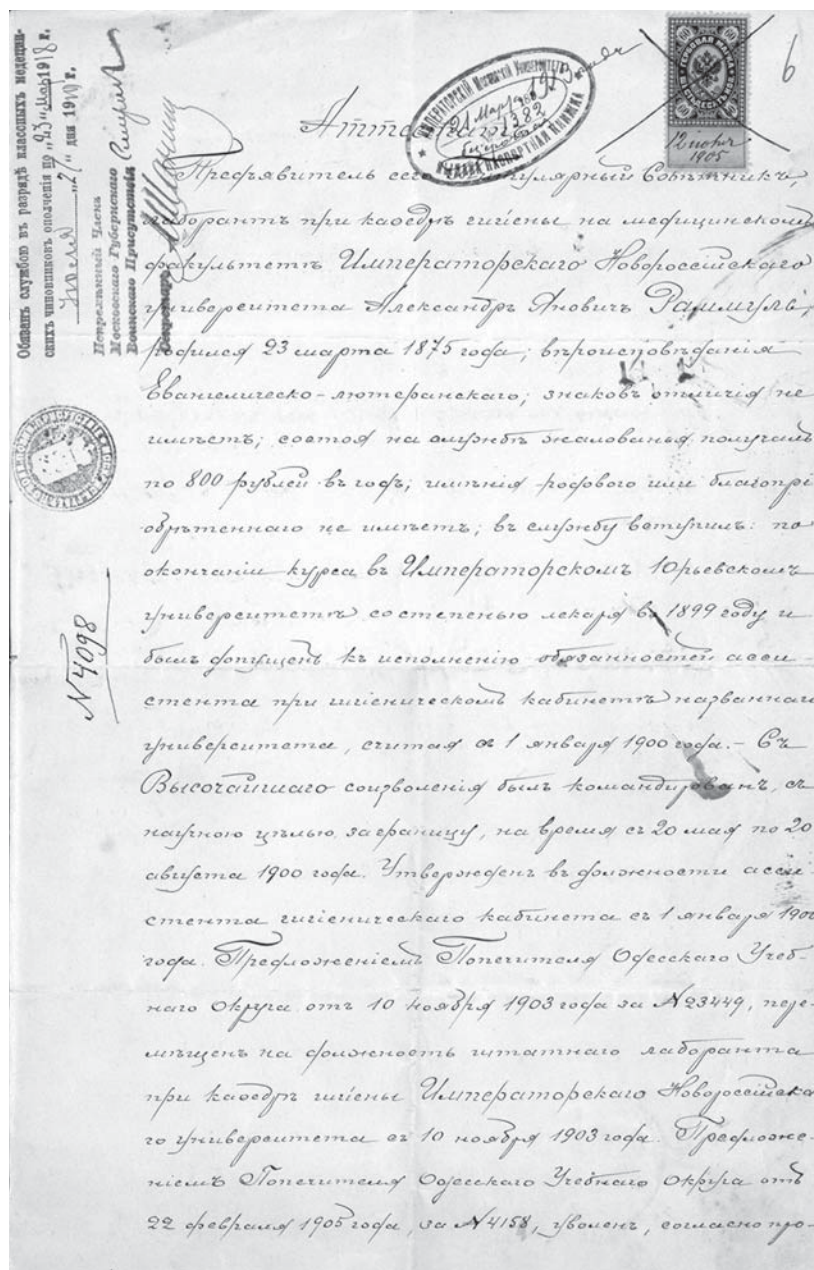 Обязанъ службою въ разрядѣ классныхъ медецин-
скихъ чиновниковъ ополченія по „23“ мар 1918 г.
Июля „21“ дня 19 г.
Непремѣнный Членъ
Московскаго Губернскаго
Воинскаго Присутствія
Секретарь
ИМПЕРАТОРСКІЙ Московскій Университетъ
21 Март
1382
ВЫДАНА ПАСПОРТНАЯ КНИЖКА
60 60
ГЕРБОВАЯ МАРКА
ШЕСТЬДЕСЯТЪ КОП.
60 60
12 1905
6
Аттестатъ
Предъявитель сего, Титулярный Совѣтникъ,
лаборантъ при каѳедрѣ гигіены на медицинскомъ
факультетѣ Императорскаго Новороссійскаго
университета Александръ Яновичъ Раммуль,
родился 23 марта 1875 года; вѣроисповѣданія
Евангелическо-лютеранскаго; знаковъ отличія не
имѣетъ; состоя на службѣ жалованья получалъ
по 800 рублей въ годъ; имѣнія родового или благопрі
обрѣтеннаго не имѣетъ; въ службу вступилъ: по
окончаніи курса въ Императорскомъ Юрьевскомъ
университетѣ со степенью лекаря въ 1899 году и
былъ допущенъ къ исполненію обязанностей асси-
стента при гигіеническомъ кабинетѣ названнаго
университета, считая съ 1 января 1900 года. – Съ
Высочайшаго соизволенія былъ командированъ, съ
научною цѣлью, заграницу, на время съ 20 мая по 20
августа 1900 года. Утвержденъ въ должности асси-
стента гигіеническаго кабинета съ 1 января
года. Предложеніемъ Попечителя Одесскаго Учеб-
наго Округа отъ 10 ноября 1903 года за №23449, пере-
мѣщенъ на должность штатнаго лаборанта
при каѳедрѣ гигіены Императорскаго Новороссійска
го университета съ 10 ноября 1903 года. Предложе-
ніемъ Попечителя Одесскаго Учебнаго Округа отъ
22 февраля 1905 года, за №4158, уволенъ, согласно про-
№4098